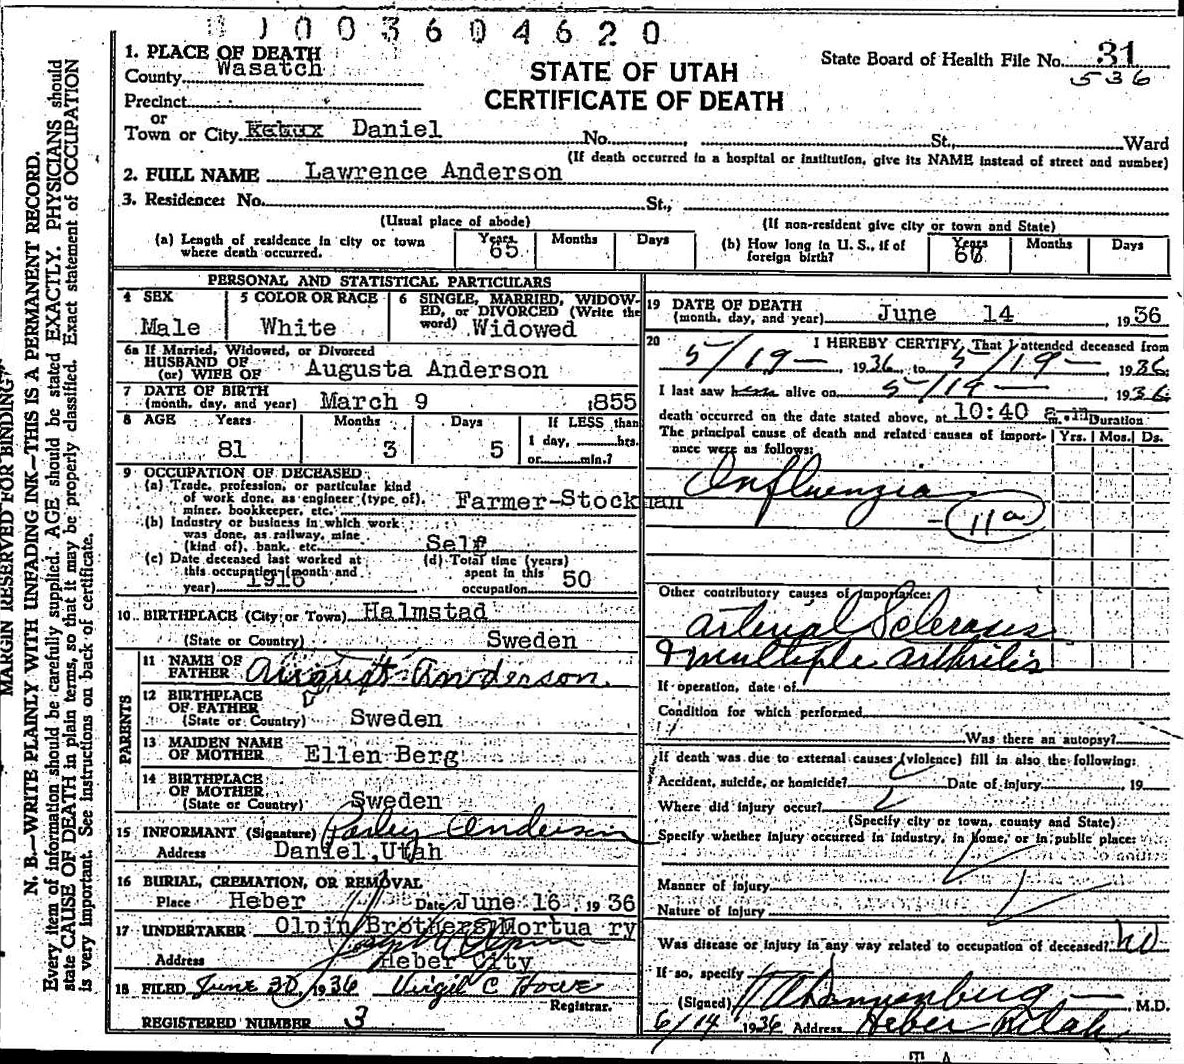 1003604620
1. PLACE OF DEATH
County Wasatch
Precinct
or
Town or City Daniel No. St., Ward
(If death occurred in a hospital or institution, give its NAME instead of street and number)
STATE OF UTAH
CERTIFICATE OF DEATH
State Board of Health File No. 31
536
2. FULL NAME Lawrence Anderson
3. Residence: No. St.,
(Usual place of abode) (If non-resident give city or town and State)
(a) Length of residence in city or town where death occurred. Years 65 Months Days
(b) How long in U. S., if of foreign birth? Years Months Days
PERSONAL AND STATISTICAL PARTICULARS
4 SEX Male
5 COLOR OR RACE White
6 SINGLE, MARRIED, WIDOWED, or DIVORCED (Write the word) Widowed
6a If Married, Widowed, or Divorced
HUSBAND OF
(or) WIFE OF Augusta Anderson
7 DATE OF BIRTH
(month, day, and year) March 9 1855
8 AGE Years 81 Months 3 Days 5 If LESS than 1 day, hrs. or min.?
9 OCCUPATION OF DECEASED
(a) Trade, profession, or particular kind
of work done, as engineer (type of),
miner, bookkeeper, etc. Farmer-Stockman
(b) Industry or business in which work
was done, as railway, mine
(kind of), bank, etc. Self
(c) Date deceased last worked at this occupation (month and year) 1916
(d) Total time (years) spent in this occupation 50
10. BIRTHPLACE (City or Town) Halmstad
(State or Country) Sweden
PARENTS
11 NAME OF FATHER August Anderson.
12 BIRTHPLACE OF FATHER
(State or Country) Sweden
13 MAIDEN NAME OF MOTHER Ellen Berg
14 BIRTHPLACE OF MOTHER
(State or Country) Sweden
15 INFORMANT (Signature) Parley Anderson
Address Daniel, Utah
16 BURIAL, CREMATION, OR REMOVAL
Place Heber Date June 16, 1936
17 UNDERTAKER Olpin Brothers Mortuary
Address Heber City
18 FILED June 30, 1936 Virgil C. Howe
Registrar.
REGISTERED NUMBER 3
19 DATE OF DEATH
(month, day, and year) June 14, 1936
20 I HEREBY CERTIFY, That I attended deceased from
5/19 — , 1936, to 5/19 — 1936
I last saw him alive on 5/19 — 1936
death occurred on the date stated above, at 10:40 a.m. Duration
The principal cause of death and related causes of importance were as follows: Yrs. Mos. Ds.
Influenzia
- 11a
Other contributory causes of importance:
Arterial Sclerosis
& multiple arthritis
If operation, date of
Condition for which performed
Was there an autopsy?
If death was due to external causes (violence) fill in also the following:
Accident, suicide, or homicide? Date of injury , 19
Where did injury occur?
(Specify city or town, county and State)
Specify whether injury occurred in industry, in home, or in public place:
Manner of injury
Nature of injury
Was disease or injury in any way related to occupation of deceased? no
If so, specify
(Signed) M.D.
6/14 1936 Address Heber Utah
MARGIN RESERVED FOR BINDING
N. B.—WRITE PLAINLY WITH UNFADING INK—THIS IS A PERMANENT RECORD.
Every item of information should be carefully supplied. AGE should be stated EXACTLY. PHYSICIANS should
state CAUSE OF DEATH in plain terms, so that it may be properly classified. Exact statement of OCCUPATION
is very important. See instructions on back of certificate.